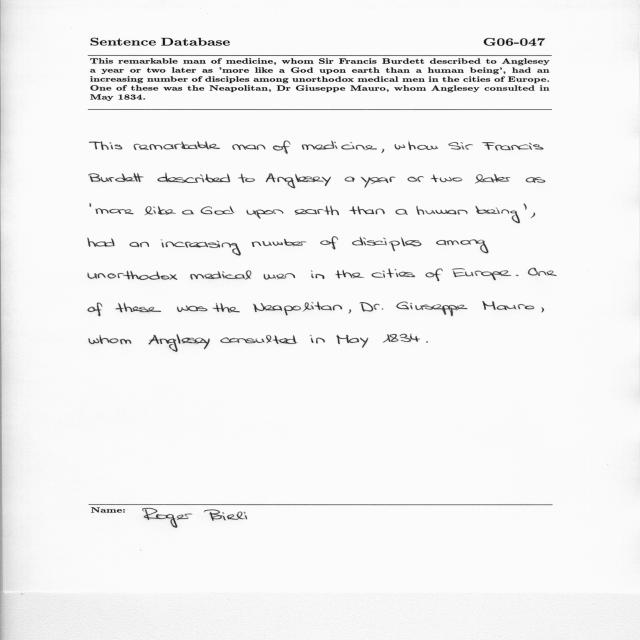 Sentence Database G06-047
This remarkable man of medicine, whom Sir Francis Burdett described to Anglesey
a year or two later as 'more like a God upon earth than a human being', had an
increasing number of disciples among unorthodox medical men in the cities of Europe.
One of these was the Neapolitan, Dr Giuseppe Mauro, whom Anglesey consulted in
May 1834.
This remarkable man of medicine, whom Sir Francis
Burdett described to Anglesey a year or two later as
'more like a God upon earth than a human being',
had an increasing number of disciples among
unorthodox medical men in the cities of Europe. One
of these was the Neapolitan, Dr. Giuseppe Mauro,
whom Anglesey consulted in May 1834.
Name: Roger Bieli